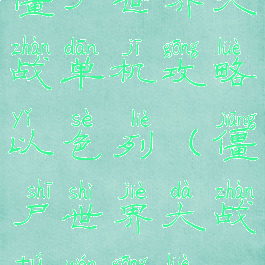 僵尸世界大
zhàn dān jī gōng lüè
战单机攻略
yǐ sè liè jiāng
以色列（僵
shī shì jiè dà zhàn
尸世界大战
gōng lüè